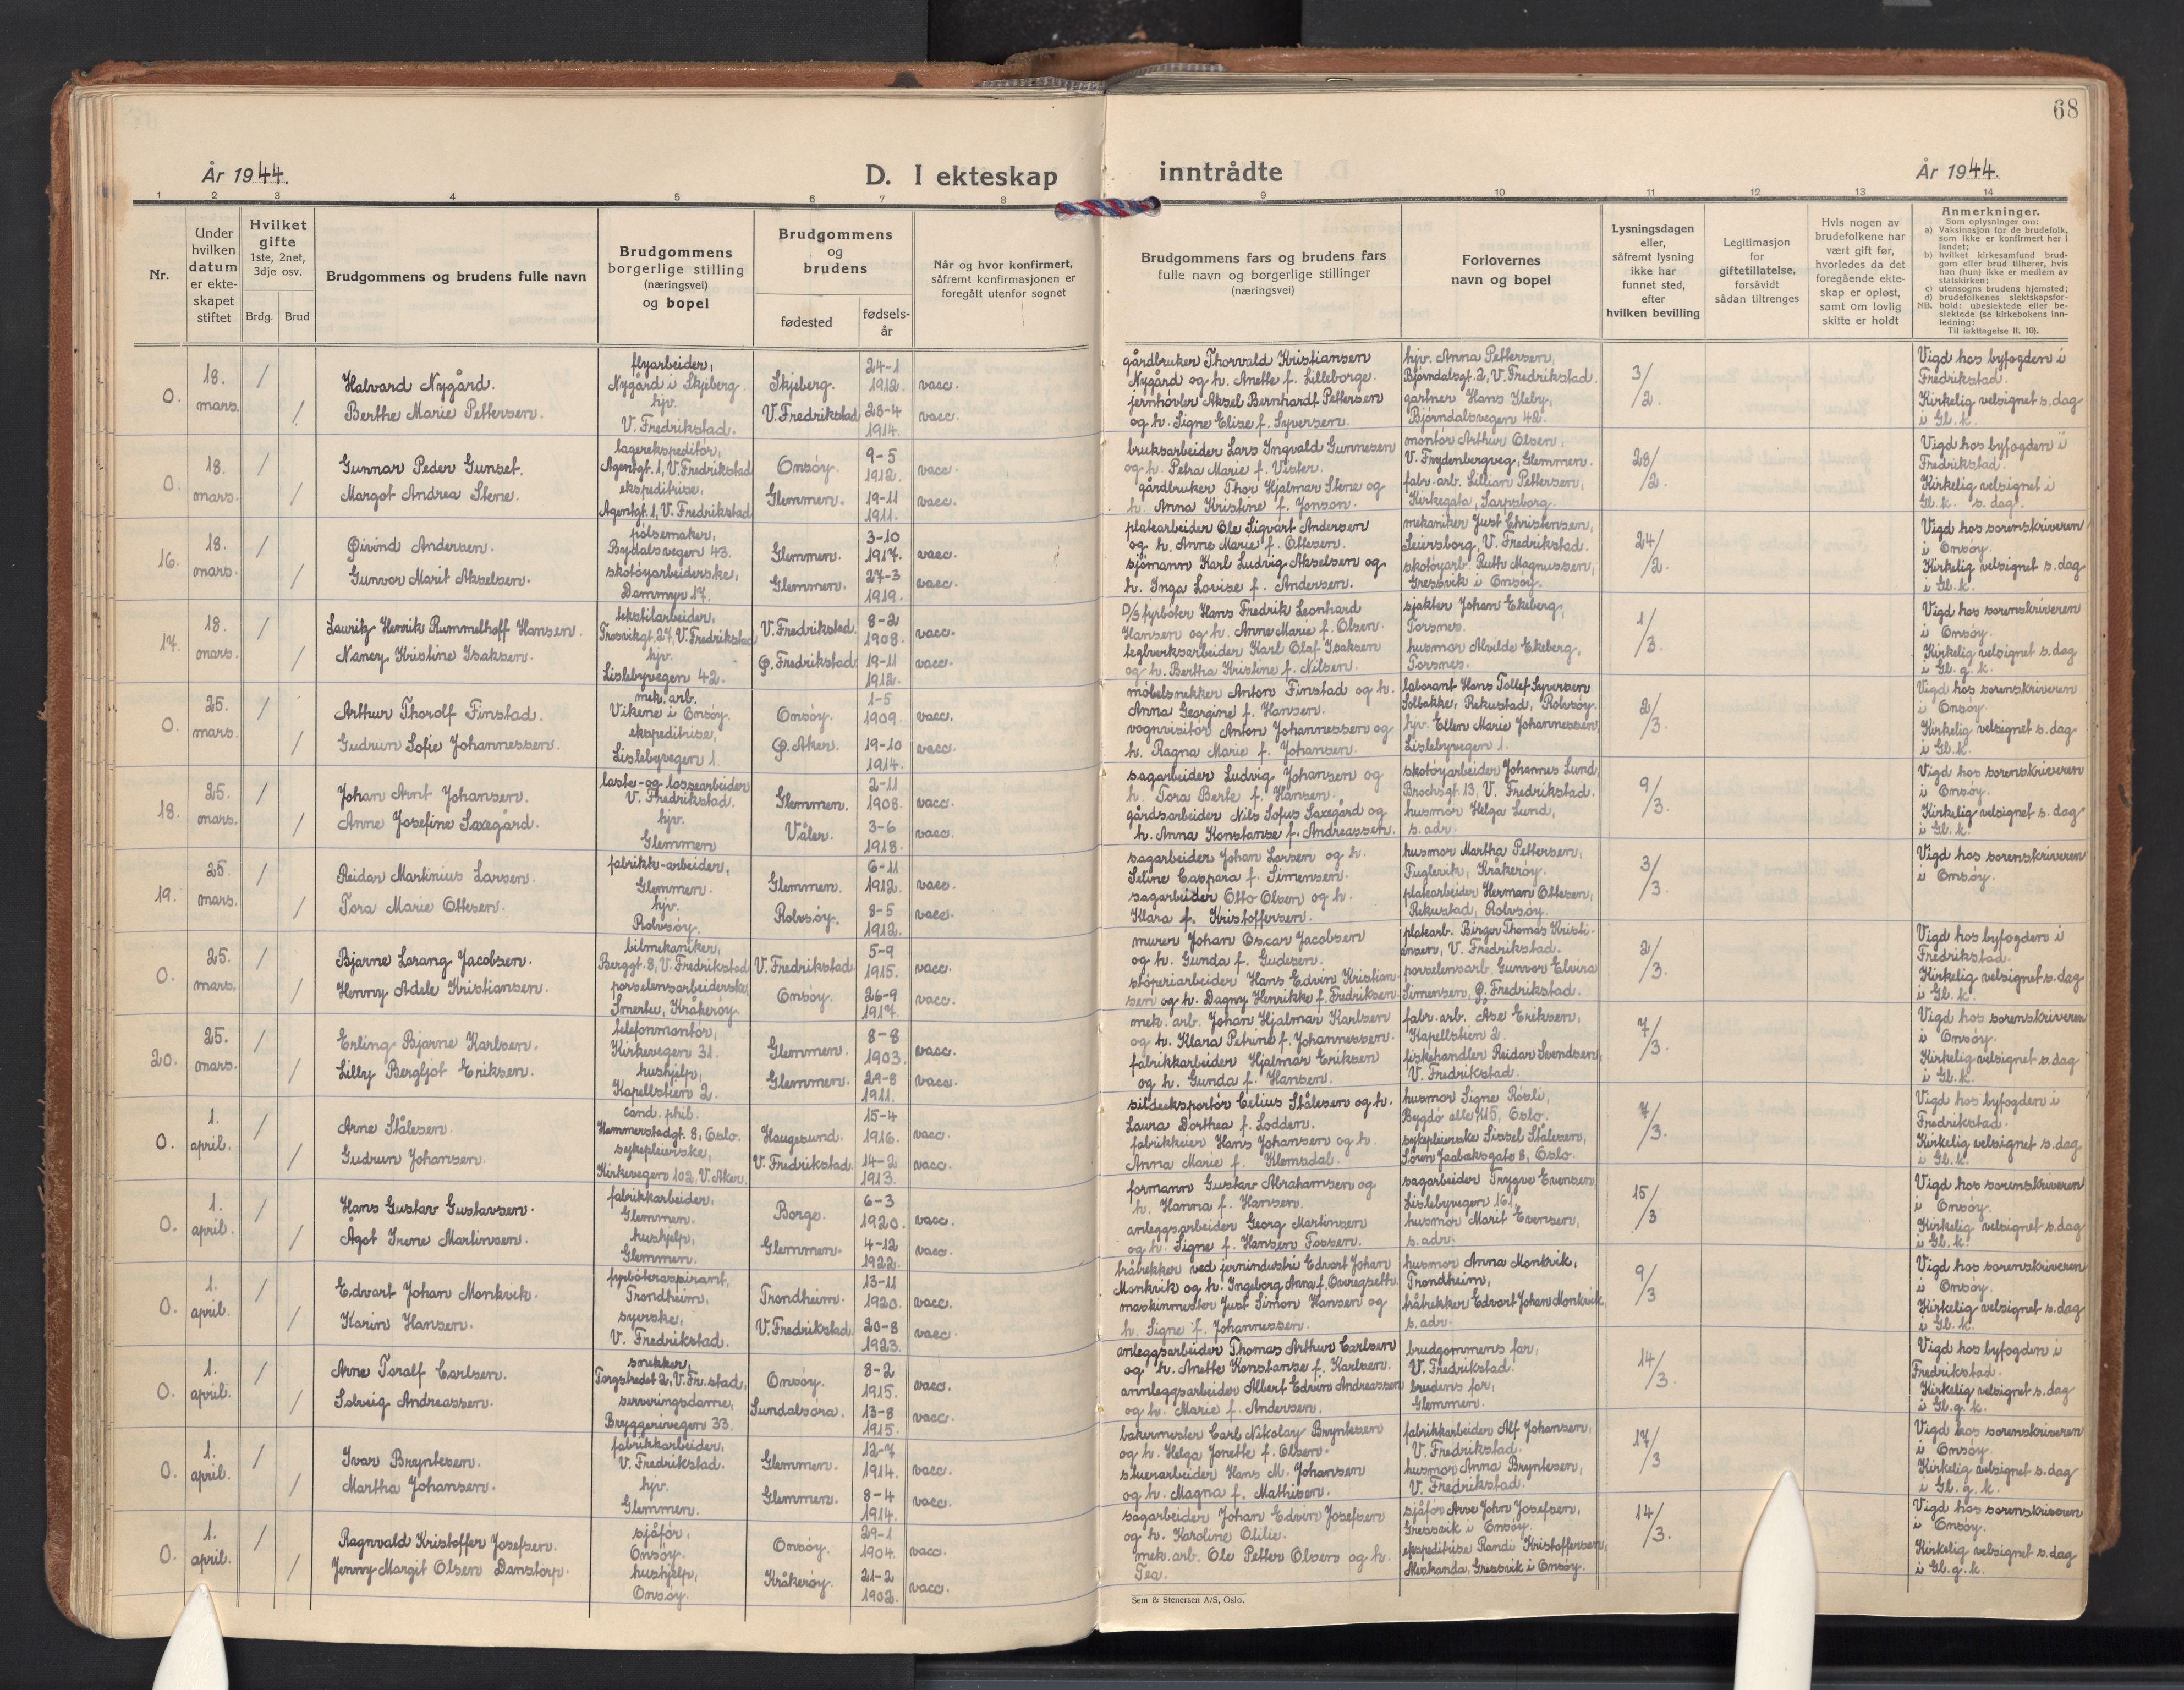 68
År 1944.
D. I ekteskap inntrådte
År 1944.
1 2 3 4 5 6 7 8 9 10 11 12 13 14
Nr.
Under hvilken datum er ekteskapet stiftet
Hvilket gifte 1ste, 2net, 3dje osv.
Brdg. Brud
Brudgommens og brudens fulle navn
Brudgommens borgerlige stilling (næringsvei) og bopel
Brudgommens og brudens
fødested
fødselsår
Når og hvor konfirmert, såfremt konfirmasjonen er foregått utenfor sognet
Brudgommens fars og brudens fars fulle navn og borgerlige stillinger (næringsvei)
Forlovernes navn og bopel
Lysningsdagen eller, såfremt lysning ikke har funnet sted, efter hvilken bevilling
Legitimasjon for giftetillatelse, forsåvidt sådan tiltrenges
Hvis nogen av brudefolkene har vært gift før, hvorledes da det foregående ekteskap er opløst, samt om lovlig skifte er holdt
Anmerkninger.
Som oplysninger om:
a) Vaksinasjon for de brudefolk, som ikke er konfirmert her i landet;
b) hvilket kirkesamfund brudgom eller brud tilhører, hvis han (hun) ikke er medlem av statskirken;
c) utensogns brudens hjemsted;
d) brudefolkenes slektskapsforhold: ubeslektede eller beslektede (se kirkebokens innledning:
NB. Til iakttagelse II. 10).
0. 18. mars. / Halvard Nygård. flyarbeider, Nygård i Skjeberg. Skjeberg. 24-1 1912. vacc.
/ Berthe Marie Pettersen. hjv. V. Fredrikstad. V. Fredrikstad 28-4 1914. vacc.
gårdbruker Thorvald Kristiansen
Nygård og h. Anette f. Lilleborge.
jernhøvler Aksel Bernhardt Pettersen
og h. Signe Elise f. Syversen.
hjv. Anna Pettersen,
Bjørndalsgt. 2, V. Fredrikstad.
gartner Hans Kleby,
Bjørndalsvegen 42.
3/2.
Vigd hos byfogden i
Fredrikstad.
Kirkelig velsignet s. dag
i Gl. k.
0. 18. mars. / Gunnar Peder Gunset. lagerekspeditør, Agentgt. 1, V. Fredrikstad Onsøy. 9-5 1912. vacc.
/ Margot Andrea Stene. ekspeditrise, Agentgt. 1, V. Fredrikstad Glemmen. 19-11 1911. vacc.
bruksarbeider Lars Ingvald Gunnesen
og h. Petra Marie f. Vister.
gårdbruker Thor Hjalmar Stene og
h. Anna Kristine f. Jonson.
montør Arthur Olsen,
V. Frydenbergveg, Glemmen.
fabr. arb. Lillian Pettersen,
Kirkegata, Sarpsborg.
28/2.
Vigd hos byfogden i
Fredrikstad.
Kirkelig velsignet i
Gl. k. s. dag.
16. 18. mars. / Øivind Andersen. pølsemaker, Bydalsvegen 43. Glemmen. 3-10 1917. vacc.
/ Gunvor Marit Akselsen. skotøyarbeiderske, Dammyr 17. Glemmen. 27-3 1919. vacc.
platearbeider Ole Sigvart Andersen
og h. Anne Marie f. Ottesen.
sjømann Karl Ludvig Akselsen og
h. Inga Lovise f. Andersen.
mekaniker Just Christensen,
Leiersborg, V. Fredrikstad.
skotøyarb. Ruth Magnussen,
Gressvik i Onsøy.
24/2.
Vigd hos sorenskriveren
i Onsøy.
Kirkelig velsignet s. dag
i Gl. k.
17. 18. mars. / Lauritz Henrik Rummelhoff Hansen. tekstilarbeider, Trosvikgt. 27, V. Fredrikstad V. Fredrikstad. 8-2 1908. vacc.
/ Nancy Kristine Isaksen. hjv. Lislebyvegen 42. Ø. Fredrikstad 19-11 1912. vacc.
D/S fyrbøter Hans Fredrik Leonhard
Hansen og h. Anne Marie f. Olsen.
teglverksarbeider Karl Olaf Isaksen
og h. Bertha Kristine f. Nilsen.
sjakter Johan Ekeberg,
Torsnes.
husmor Alvilde Ekeberg,
Torsnes.
1/3.
Vigd hos sorenskriveren
i Onsøy.
Kirkelig velsignet s. dag
i Gl. g. k.
0. 25. mars. / Arthur Thoralf Finstad. mek. arb. Vikene i Onsøy. Onsøy. 1-5 1909. vacc.
/ Gudrun Sofie Johannessen. ekspeditrise, Lislebyvegen 1. Ø. Aker. 19-10 1914. vacc.
møbelsnekker Anton Finstad og h.
Anna Georgine f. Hansen.
vognvisitør Anton Johannessen og
h. Ragna Marie f. Johansen.
laborant Hans Tollef Syversen
Solbakke, Rekustad, Rolvsøy.
hjv. Ellen Marie Johannessen,
Lislebyvegen 1.
2/3.
Vigd hos sorenskriveren
i Onsøy.
Kirkelig velsignet s. dag
i Gl. k.
18. 25. mars. / Johan Arnt Johansen. laste- og lossearbeider V. Fredrikstad. Glemmen. 2-11 1908. vacc.
/ Anne Josefine Saxegård. hjv. Glemmen Våler. 3-6 1918. vacc.
sagarbeider Ludvig Johansen og
h. Tora Berte f. Hansen.
gårdsarbeider Nils Sofus Saxegård og
h. Anna Konstanse f. Andreassen.
skotøyarbeider Johannes Lund,
Brochsgt. 13, V. Fredrikstad.
husmor Helga Lund,
s. adr.
9/3.
Vigd hos sorenskriveren
i Onsøy.
Kirkelig velsignet s. dag
i Gl. k.
19. 25. mars. / Reidar Martinius Larsen. fabrikk-arbeider, Glemmen. Glemmen. 6-11 1912. vacc.
/ Tora Marie Ottesen. hjv. Rolvsøy. Rolvsøy. 8-5 1912. vacc.
sagarbeider Johan Larsen og h.
Seline Caspara f. Simensen.
sagarbeider Otto Olsen og h.
Klara f. Kristoffersen.
husmor Martha Pettersen,
Fuglevik, Kråkerøy.
platearbeider Herman Ottesen,
Rekustad, Rolvsøy.
3/3.
Vigd hos sorenskriveren
i Onsøy.
0. 25. mars. / Bjarne Lorang Jacobsen. bilmekaniker, Berggt. 8, V. Fredrikstad V. Fredrikstad 5-9 1915. vacc.
/ Henny Adele Kristiansen. porselensarbeiderske, Smertu, Kråkerøy Onsøy. 26-9 1917. vacc.
murer Johan Oscar Jacobsen
og h. Gunda f. Gudesen.
støperiarbeider Hans Edvin Kristian-
sen og h. Dagny Henrikke f. Fredriksen.
platearb. Birger Thomas Kristi-
ansen, V. Fredrikstad.
porselensarb. Gunvor Elvira
Simensen, Ø. Fredrikstad.
2/3.
Vigd hos byfogden i
Fredrikstad.
Kirkelig velsignet s. dag
i Gl. k.
20. 25. mars. / Erling Bjarne Karlsen. telefonmontør, Kirkevegen 31. Glemmen. 8-8 1903. vacc.
/ Lilly Bergljot Eriksen. hushjelp, Kapellstien 2. Glemmen. 29-8 1911. vacc.
mek. arb. Johan Hjalmar Karlsen
og h. Klara Petrine f. Johannessen.
fabrikkarbeider Hjalmar Eriksen
og h. Gunda f. Hansen.
fabr. arb. Åse Eriksen,
Kapellstien 2.
fiskehandler Reidar Svendsen,
V. Fredrikstad.
7/3.
Vigd hos sorenskriveren
i Onsøy.
Kirkelig velsignet s. dag
i Gl. k.
0. 1. april. / Arne Stålesen. cand. phil. Hammerstadgt. 8, Oslo. Haugesund. 15-4 1916. vacc.
/ Gudrun Johansen. sykepleierske, Kirkevegen 102, V. Aker. V. Fredrikstad 14-2 1913. vacc.
sildeeksportør Celius Stålesen og h.
Laura Dorthea f. Lodden.
fabrikkeier Hans Johansen og h.
Anna Marie f. Klemsdal.
husmor Signe Røsli,
Bygdø alle 115, Oslo.
sykepleierske Sissel Stålesen,
Søren Jaabæksgate 8, Oslo.
7/3.
Vigd hos byfogden i
Fredrikstad.
Kirkelig velsignet s. dag
i Gl. k.
0. 1. april. / Hans Gustav Gustavsen. fabrikkarbeider, Glemmen. Borge. 6-3 1920. vacc.
/ Ågot Irene Martinsen. hushjelp, Glemmen. Glemmen. 4-12 1922. vacc.
formann Gustav Abrahamsen og
h. Hanna f. Hansen.
anleggsarbeider Georg Martinsen
og h. Signe f. Hansen Fossen.
sagarbeider Trygve Evensen
Lislebyvegen 161,
husmor Marit Evensen,
s. adr.
15/3
Vigd hos sorenskriveren
i Onsøy.
Kirkelig velsignet s. dag
i Gl. k.
0. 1. april. / Edvart Johan Monkvik. fyrbøteraspirant, Trondheim, Trondheim. 13-11 1920. vacc.
/ Karin Hansen. syerske, V. Fredrikstad. V. Fredrikstad 20-8 1923. vacc.
tråtrekker ved jernindustri Edvart Johan
Monkvik og h. Ingeborg Anna f. Overegseth.
maskinmester Just Simon Hansen og
h. Signe f. Johannessen.
husmor Anna Monkvik,
Trondheim,
tråtrekker Edvart Johan Monkvik,
s. adr.
9/3
Vigd hos sorenskriveren
i Onsøy.
Kirkelig velsignet s. dag
i Gl. k.
0. 1. april. / Arne Toralf Carlsen. snekker, Torgstredet 2, V. Fr.stad, Onsøy. 8-2 1915. vacc.
/ Solveig Andreassen. serveringsdame, Bryggerivegen 33. Sundalsøra. 13-8 1915. vacc.
anleggsarbeider Thomas Arthur Carlsen
og h. Anette Konstanse f. Karlsen.
annleggsarbeider Albert Edvin Andreassen
og h. Marie f. Andersen.
brudgommens far,
V. Fredrikstad.
brudens far,
Glemmen.
14/3.
Vigd hos byfogden i
Fredrikstad.
Kirkelig velsignet s. dag
i Gl. g. k.
0. 1. april. / Ivar Bryntesen. fabrikkarbeider, V. Fredrikstad. Glemmen. 12-7 1914. vacc.
/ Martha Johansen. hjv. Glemmen. Glemmen. 8-4 1914. vacc.
bakermester Carl Nikolay Bryntesen
og h. Helga Jonette f. Olsen.
stuerarbeider Hans M. Johansen
og h. Magna f. Mathisen.
fabrikkarbeider Alf Johansen,
V. Fredrikstad.
husmor Anna Bryntesen,
V. Fredrikstad.
17/3
Vigd hos sorenskriveren
i Onsøy.
Kirkelig velsignet s. dag
i Gl. g. k.
0. 1. april. / Ragnvald Kristoffer Josefsen. sjåfør, Onsøy. Onsøy. 29-1 1904. vacc.
/ Jenny Margit Olsen Danstorp. hushjelp, Onsøy. Kråkerøy. 21-2 1902. vacc.
sagarbeider Johan Edvin Josefsen
og h. Karoline Otilie.
mek. arb. Ole Petter Olsen og h.
Tea.
sjåfør Arve John Josefsen,
Gressvik i Onsøy.
ekspeditrise Randi Kristoffersen,
Alestranda, Gressvik i Onsøy.
14/3.
Vigd hos sorenskriveren
i Onsøy.
Kirkelig velsignet s. dag
i Gl. g. k.
Sem & Stenersen A/S, Oslo.